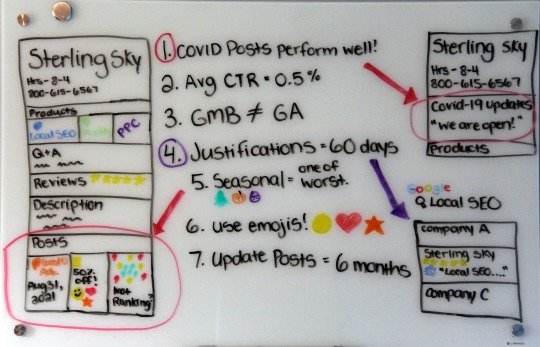 Sterling Sky
Hrs - 8-4
800-615-6567
Products
Local SEO
PPC
Q+A
Reviews
Description
Posts
Aug 31, 2021
50% off!
Not Ranking?
1. COVID Posts perform well!
2. Avg CTR = 0.5%
3. GMB ≠ GA
4. Justifications = 60 days
5. Seasonal = one of worst.
6. use emojis!
7. Update Posts = 6 months
Sterling Sky
Hrs - 8-4
800-615-6567
Covid-19 updates
"we are open!"
Products
Google
Local SEO
company A
Sterling Sky
"Local SEO...."
company C